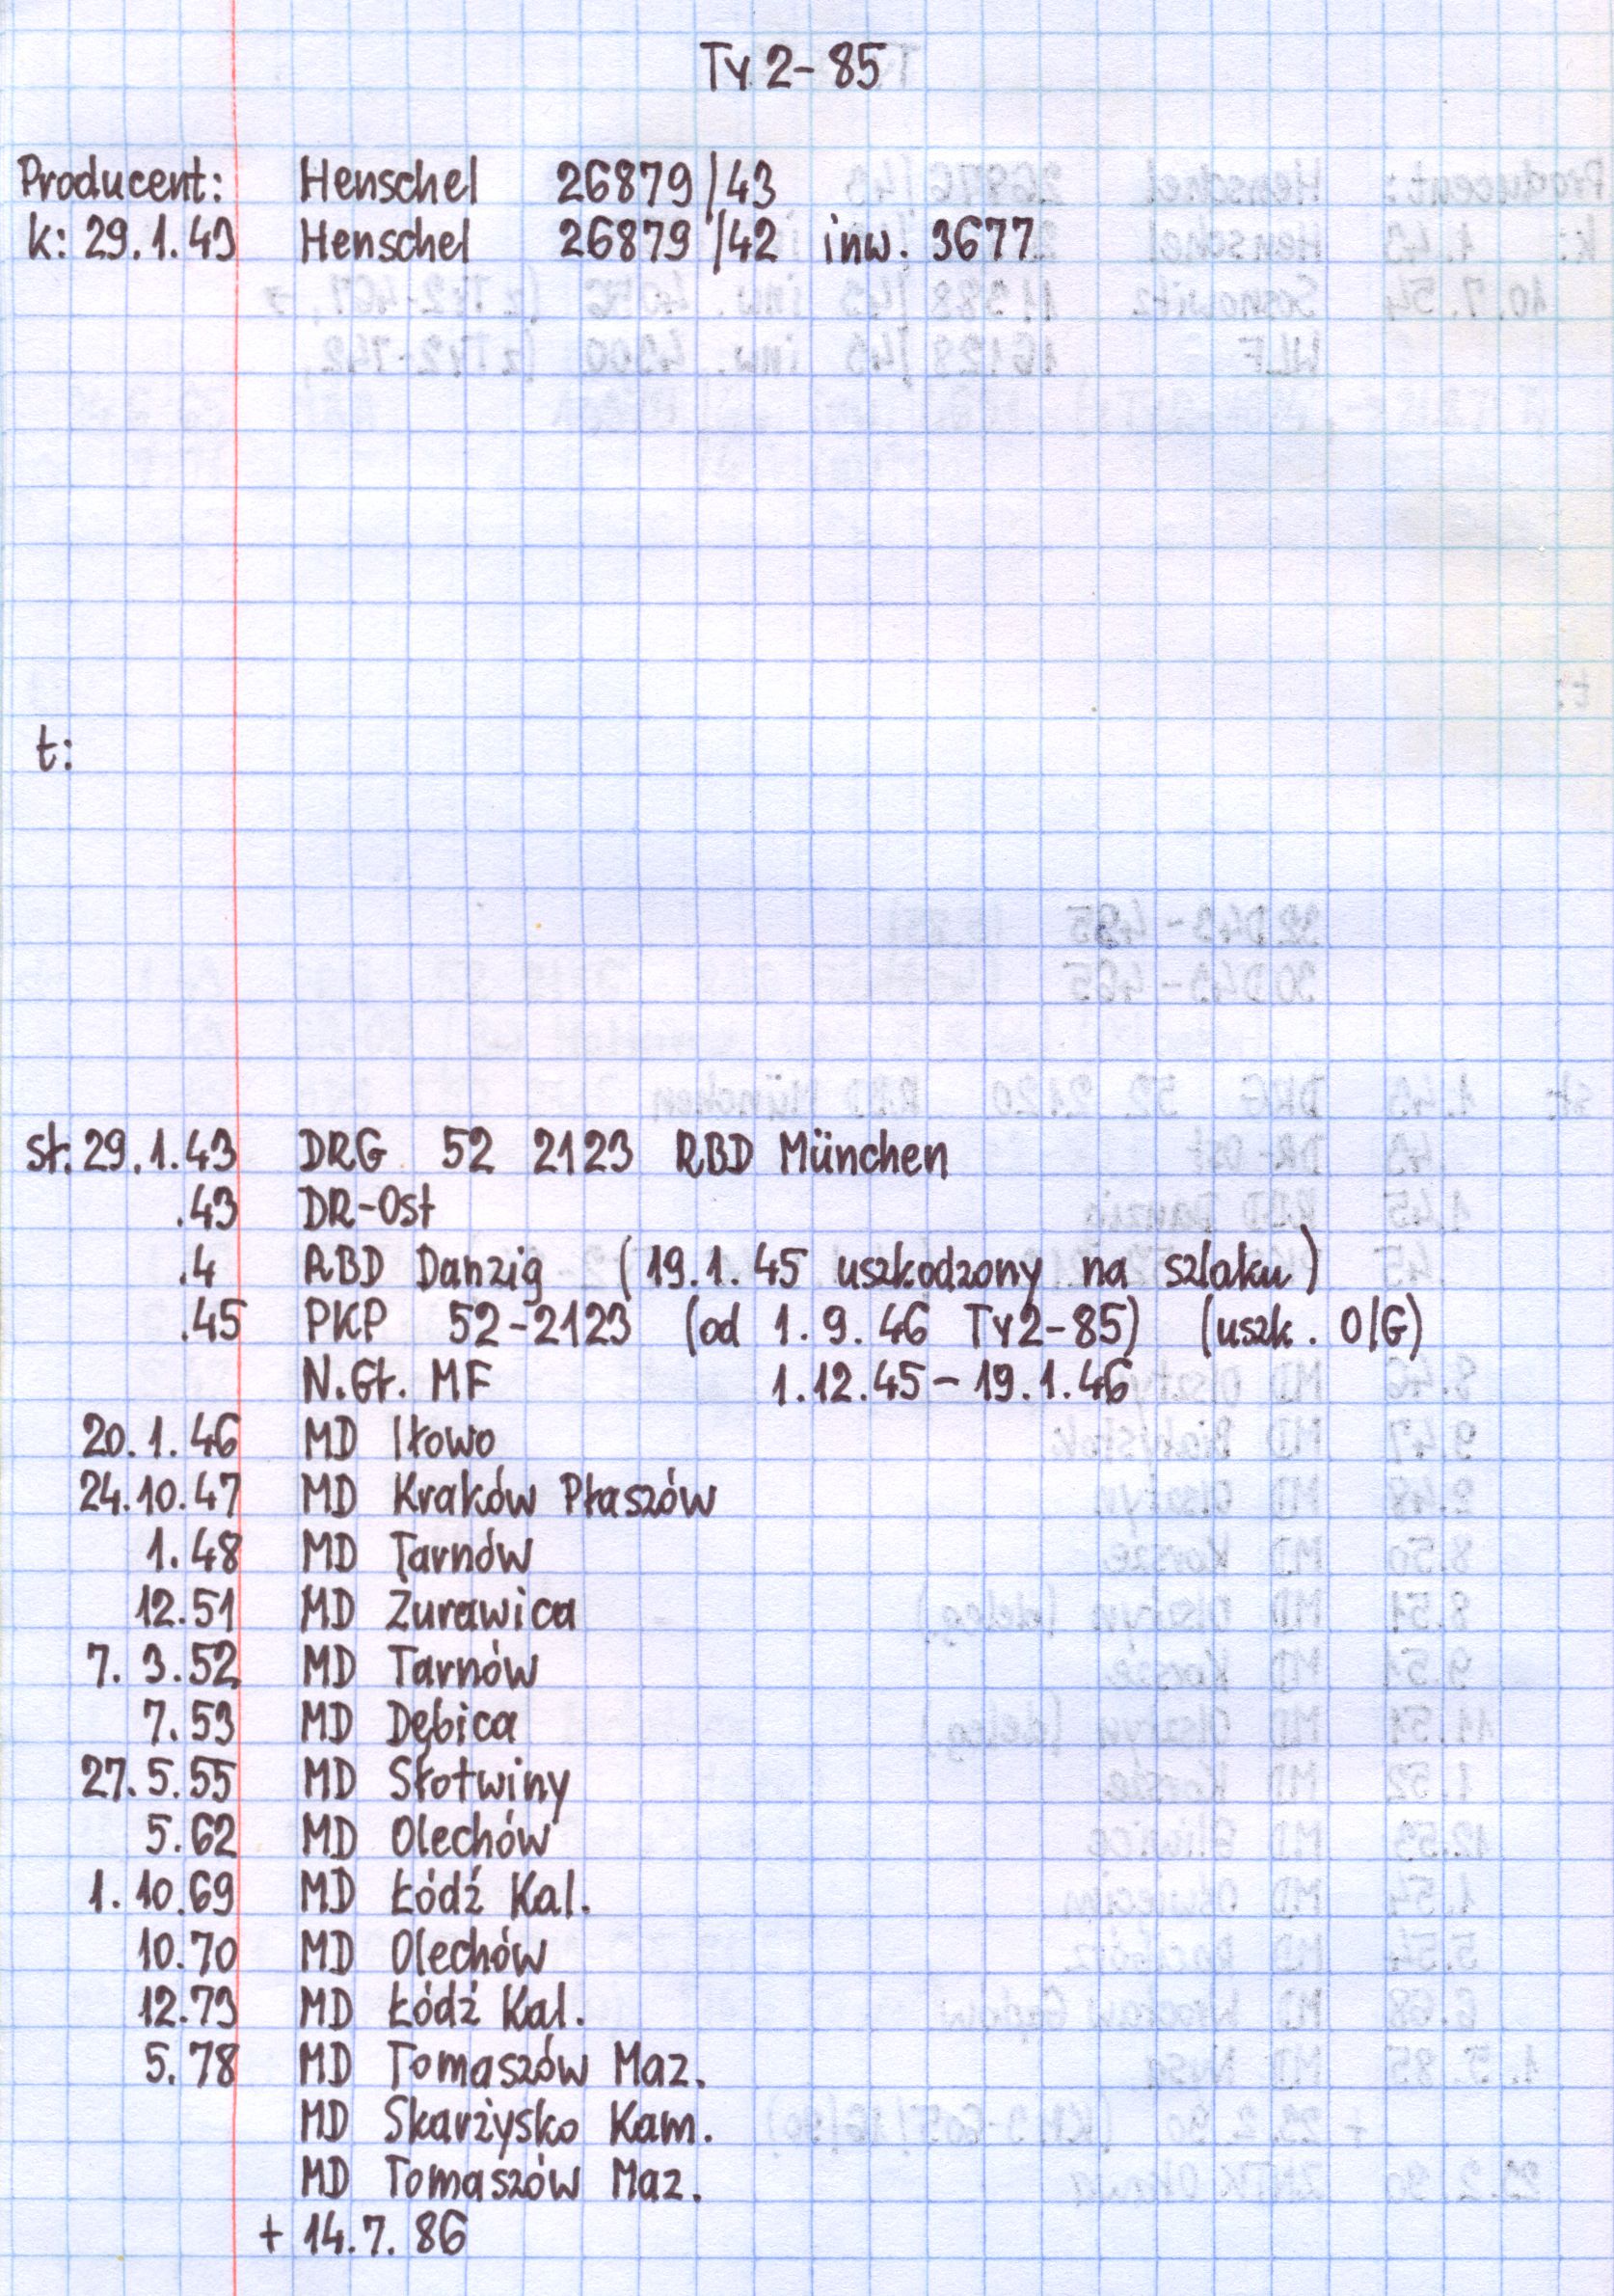 Ty2-85
Producent: Henschel 26879/43
k: 29.1.43 Henschel 26879/42 inw. 3677
t:
st. 29.1.43 DRG 52 2123 RBD München
.43 DR-Ost
.4 RBD Danzig (19.1.45 uszkodzony na szlaku)
.45 PKP 52-2123 (od 1.9.46 Ty2-85) (uszk. O/G)
N.Gł. MF 1.12.45-19.1.46
20.1.46 MD Iłowo
24.10.47 MD Kraków Płaszów
1.48 MD Tarnów
12.51 MD Żurawica
7.3.52 MD Tarnów
7.53 MD Dębica
27.5.55 MD Słotwiny
5.62 MD Olechów
1.10.69 MD Łódź Kal.
10.70 MD Olechów
12.73 MD Łódź Kal.
5.78 MD Tomaszów Maz.
MD Skarżysko Kam.
MD Tomaszów Maz.
+ 14.7.86